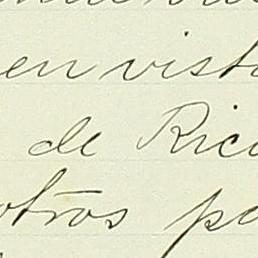 en vist
de Ric
otros p